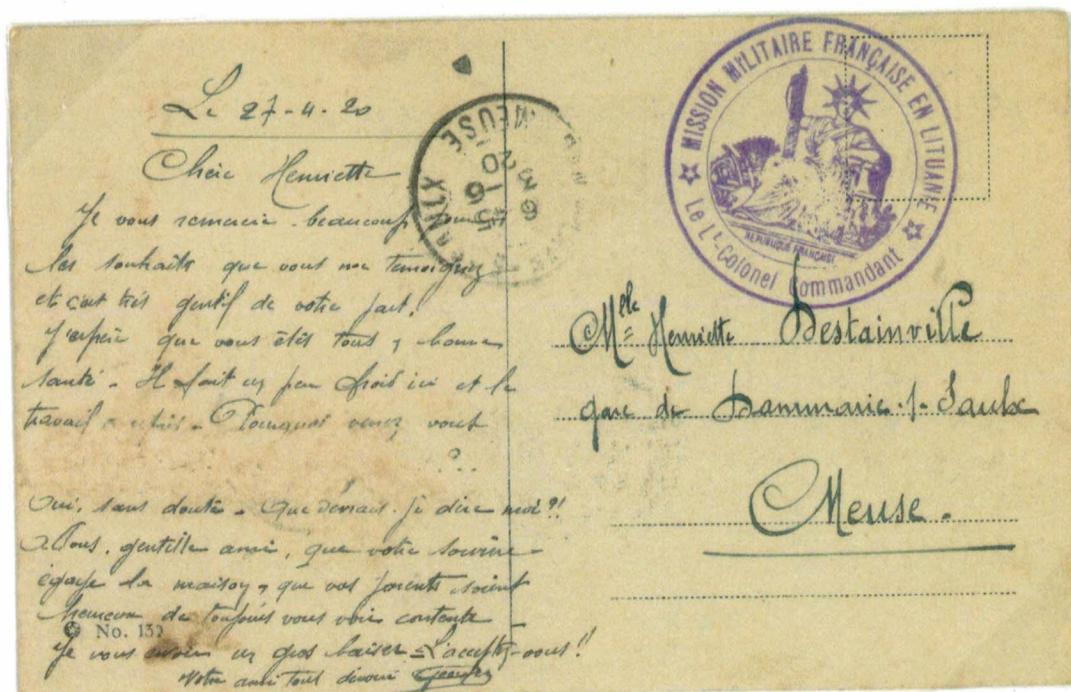 Le 27-4-20
Chère Henriette
Je vous remercie beaucoup
les souhaits que vous me temoignez
et c'est très gentil de votre part.
J'espère que vous êtes tous, bonne
santé. Il fait un peu froid ici et le
travail Pourquoi venez vous
?..
Oui, sans doute. Que devrais-je dire moi?!
Allons, gentille amie, que votre sourire
égaye la maison, que vos parents soient
heureux de toujours vous voir contente
No. 132
Je vous envoie un gros baiser L'acceptez-vous!!
Votre ami tout dévoué
MEUSE
MISSION MILITAIRE FRANÇAISE EN LITUANIE
REPUBLIQUE FRANÇAISE
Le Lt-Colonel Commandant
Melle Henriette Destainville
gare de Dammarie s/- Saulx
Meuse.